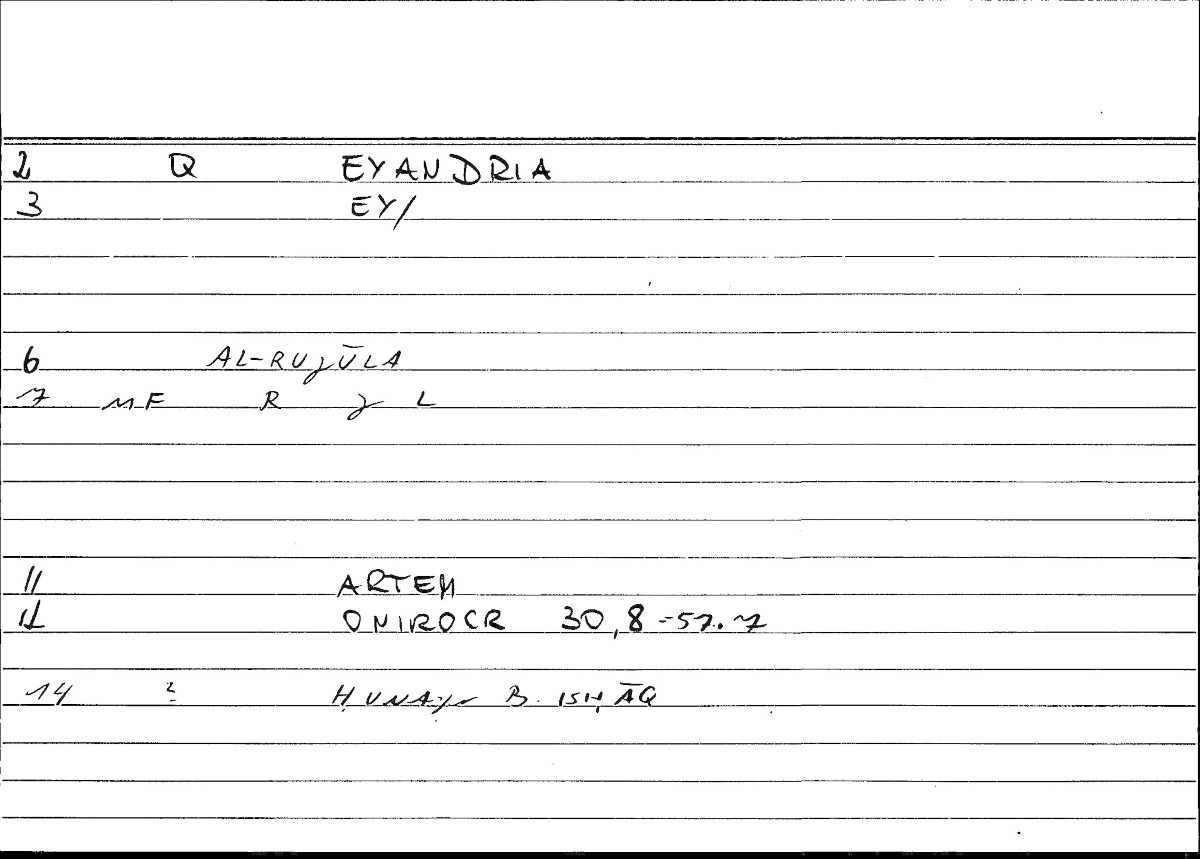 2 Q EYANDRIA
3 EY/
6 AL-RUJŪLA
7 MF R J L
11 ARTEM
12 ONIROCR 30,8-57.7
14 2 ḤUNAYN B. ISḤĀQ